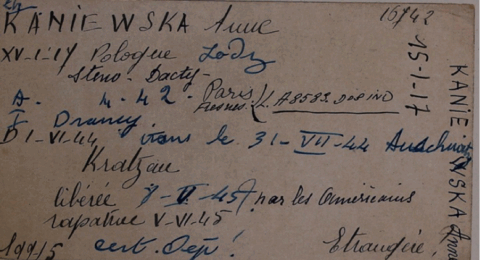 KANIEWSKA Anne
16742
XV-1-17 Pologne Lodz
Steno-Dacty-
A. 4-42. Paris
Fresnes. A8582 Dos IND
I Drancy.
D 1-VI-44 trans le 31-VII-44 Auschwitz
Kratzau
libérée 9-V-45 par les Américains
rapatriée V-VI-45
cert. Dep!
Etrangère.
15-1-17
KANIEWSKA Anne